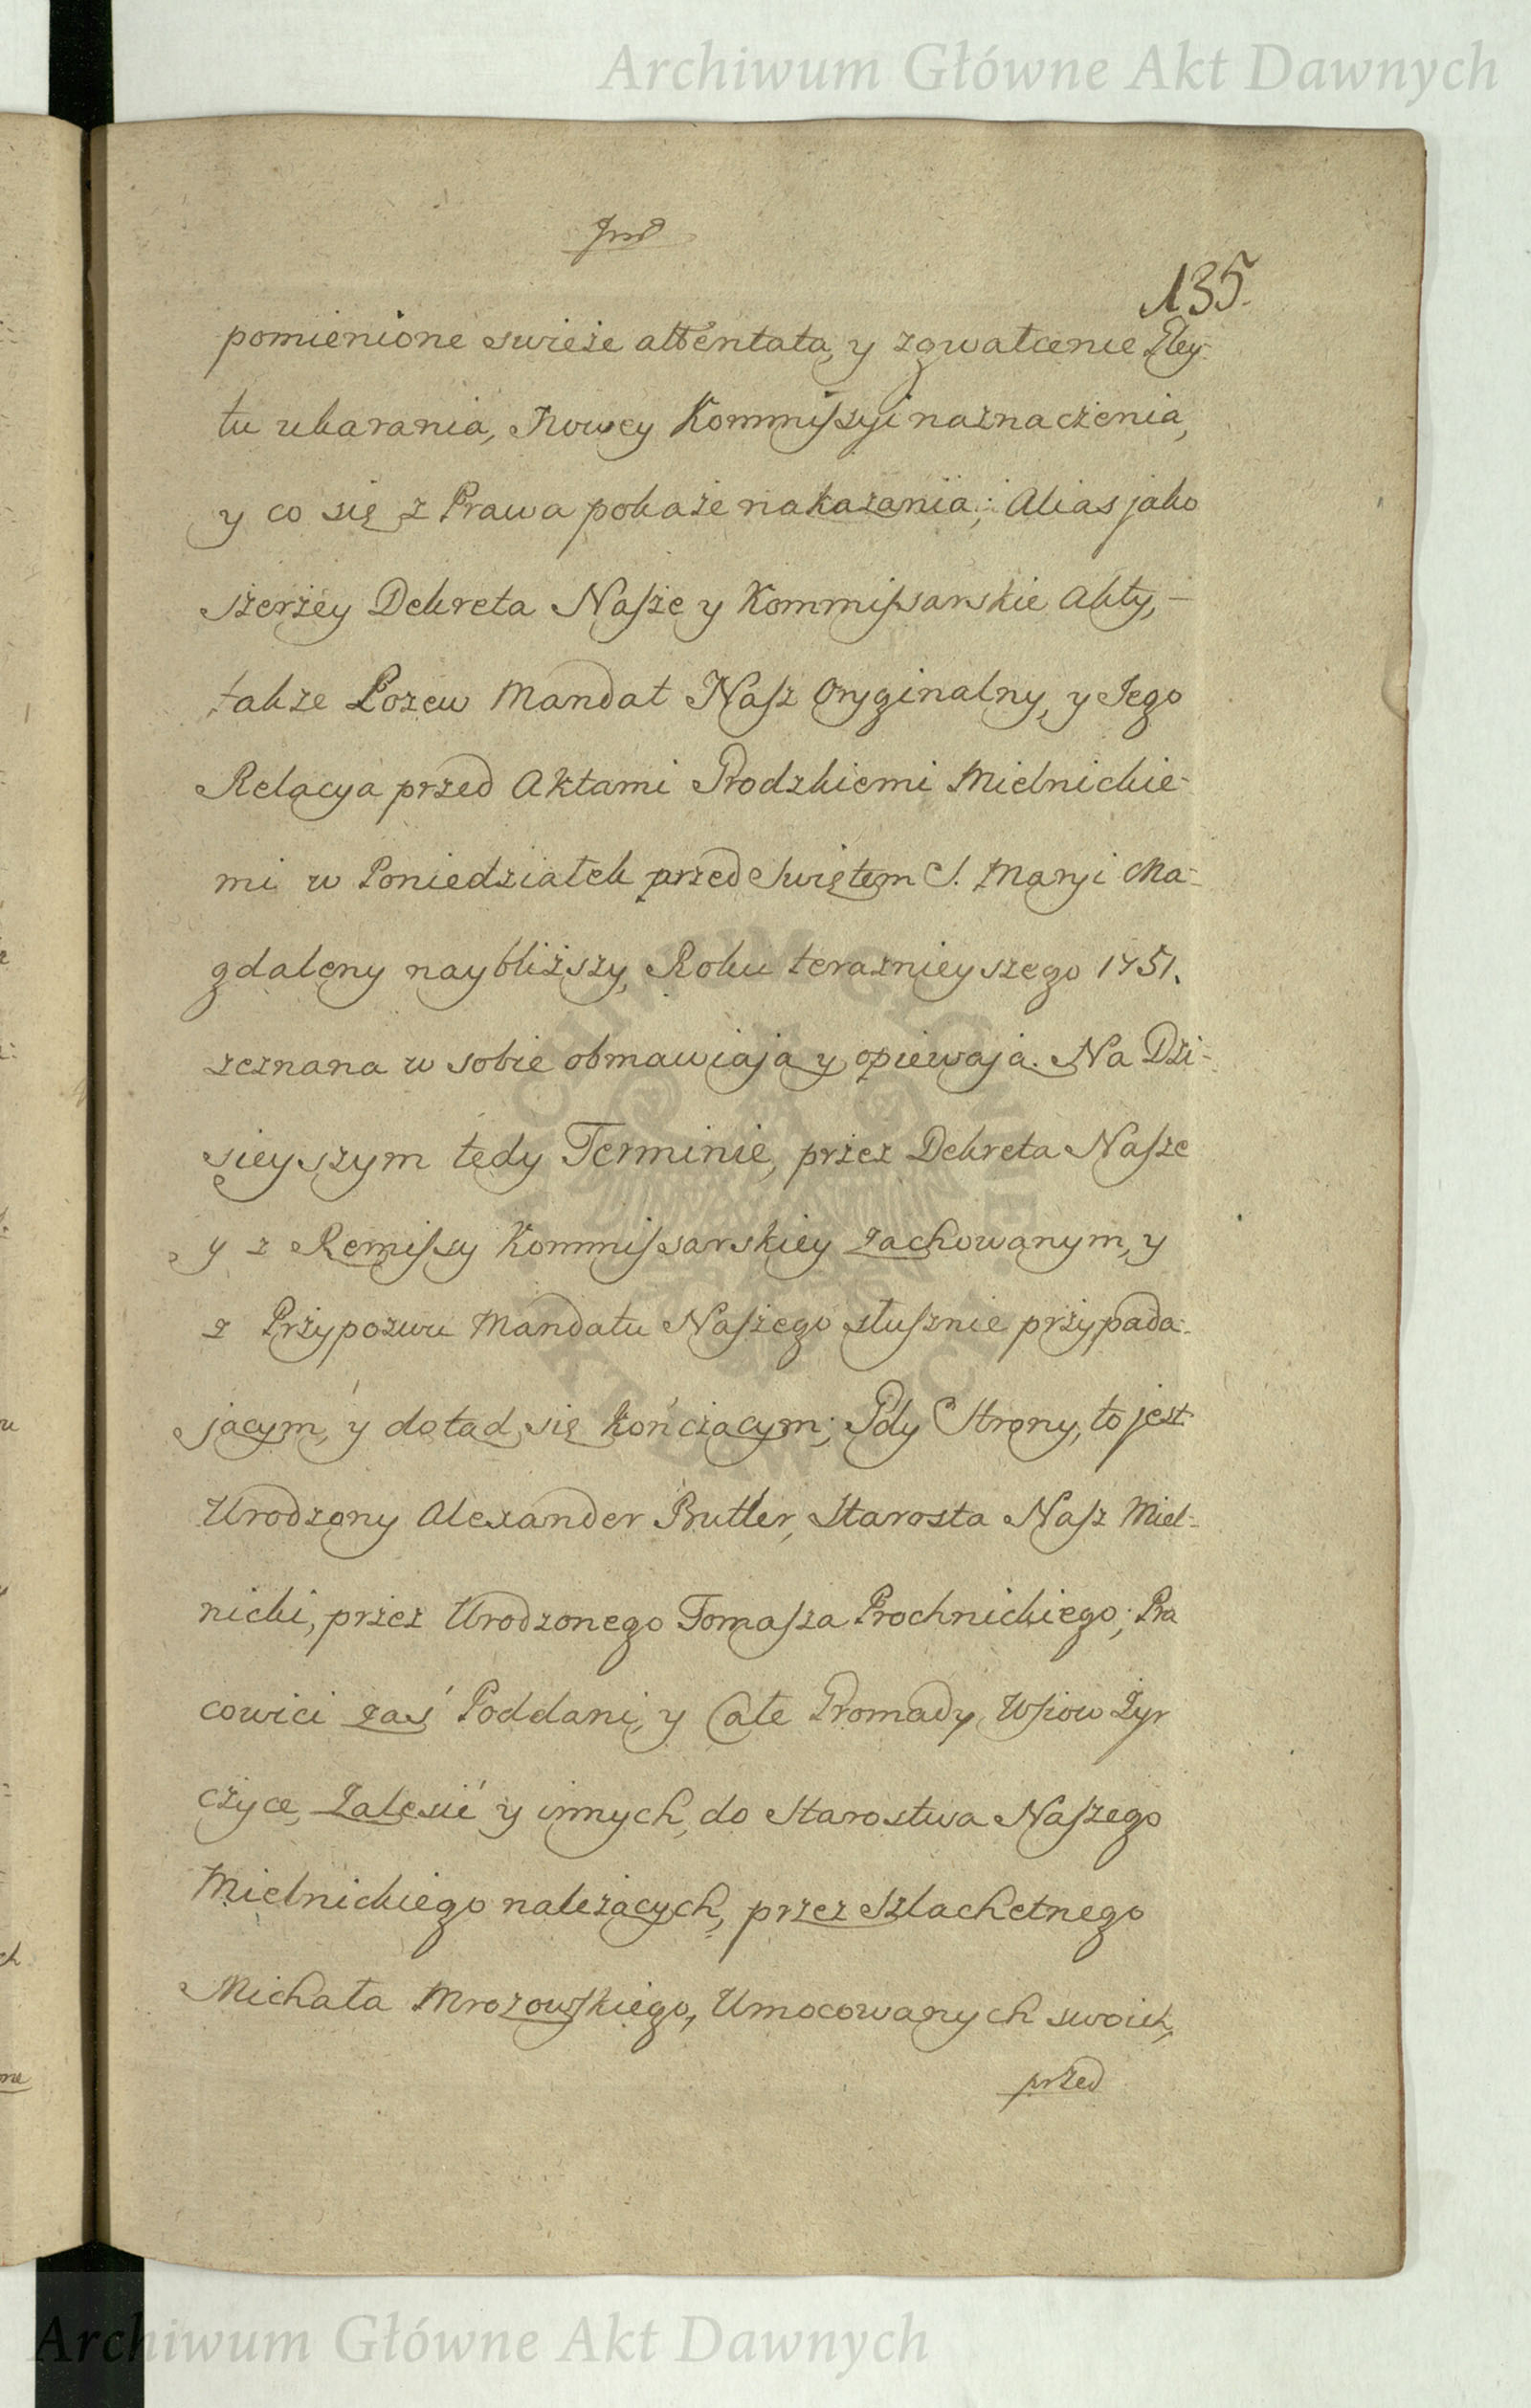 Archiwum Główne Akt Dawnych
135.
pomienione swieże attentata, y zgwałcenie Gley-
tu ukarania, Nowey Kommissyi naznaczenia,
y co się z Prawa pokaże nakazania; Alias jako
szerzey Dekreta Nasze y Kommissarskie Akty,
także Pozew Mandat Nasz Oryginalny, y Jego
Relacya przed Aktami Grodzkiemi Mielnickie-
mi w Poniedziałek przed Swiętem S. Maryi Ma-
gdaleny naybliższy, Roku terazneyszego 1751.
zeznana w sobie obmawiają y opiewają. Na Dzi-
sieyszym tedy Terminie, przez Dekreta Nasze
y z Remissy Kommissarskiey zachowanym, y
z Przypozwu Mandatu Naszego słusznie przypada-
jącym, y dotąd się kończącym; Gdy Strony, to jest
Urodzony Alexander Butler, Starosta Nasz Miel-
nicki, przez Urodzonego Tomasza Prochnickiego; Pra
cowici zaś Poddani, y Całe Gromady Wsiow Zyr
czyce, Zalesié y innych, do Starostwa Naszego
Mielnickiego należących, przez Szlachetnego
Michała Mrozowskiego, Umocowanych swoich,
przed
Archiwum Główne Akt Dawnych